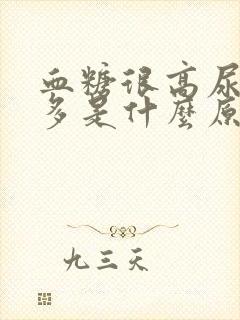 血糖很高尿
多是什麼原
九三天